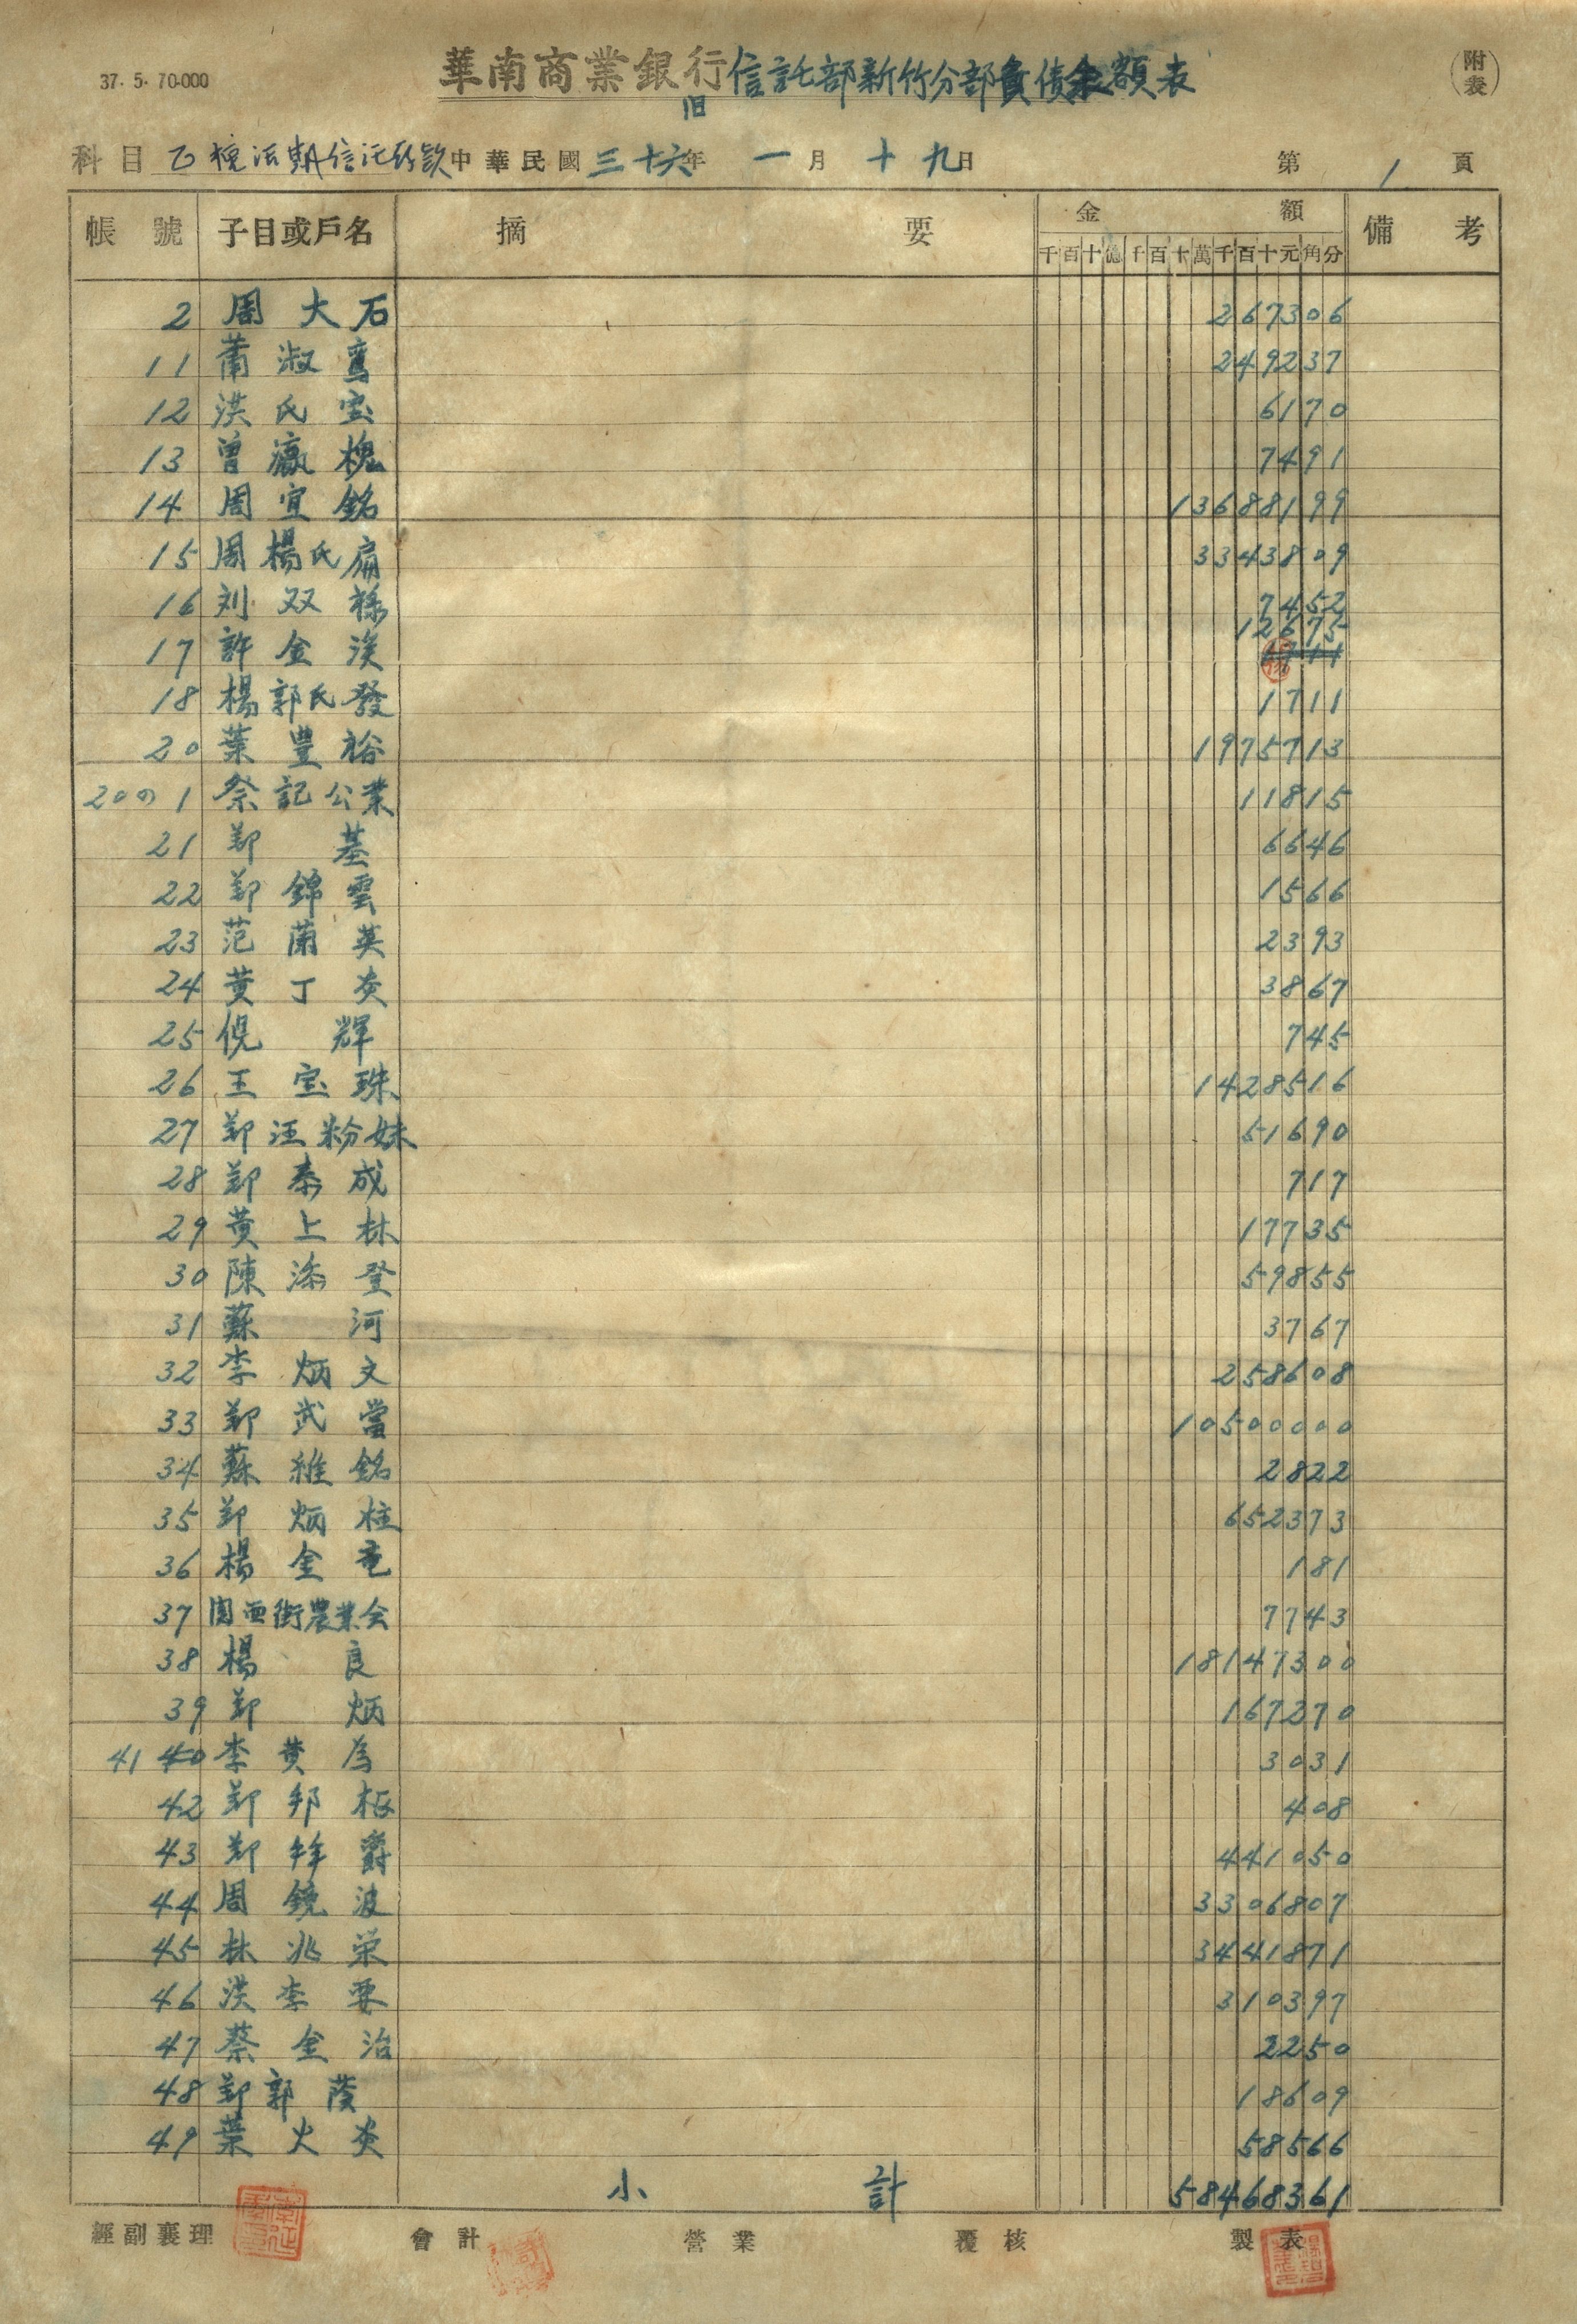 37.5.70-000
華南商業銀行信託部新竹分部負債余額表
旧
附表
科目 乙種活期信託存款 中華民國三十六年 一月 十九日 第 1 頁
帳號 子目或戶名 摘要 金額 備考
千百十億千百十萬千百十元角分
2 周大石 267306
11 蕭淑鸞 249237
12 洪氏宝 6170
13 曾瀛槐 7491
14 周宜銘 13688199
15 周楊氏扁 3343809
16 刘双禄 7452
12675
17 許金渓 1711
18 楊郭氏發 1711
20 葉豊裕 1975713
20の1 祭記公業 11815
21 鄭基 6646
22 鄭錦雲 1566
23 范蘭英 2393
24 黄丁炎 3867
25 倪輝 745
26 王宝珠 1428516
27 鄭汪粉妹 51690
28 鄭泰成 717
29 黄上林 17735
30 陳添登 59855
31 蘇河 3767
32 李炳文 258608
33 鄭武當 10500000
34 蘇維銘 2822
35 鄭炳柱 652373
36 楊金竜 181
37 関西街農業会 7743
38 楊良 18147300
39 鄭炳 167270
41 40 李黄為 3031
42 鄭邦 408
43 鄭爵 441050
44 周鏡波 3306807
45 林兆栄 3441871
46 洪李要 310397
47 蔡金治 2250
48 鄭郭 18609
49 葉火炎 58566
小計 58468361
經副襄理 會計 營業 覆核 製表